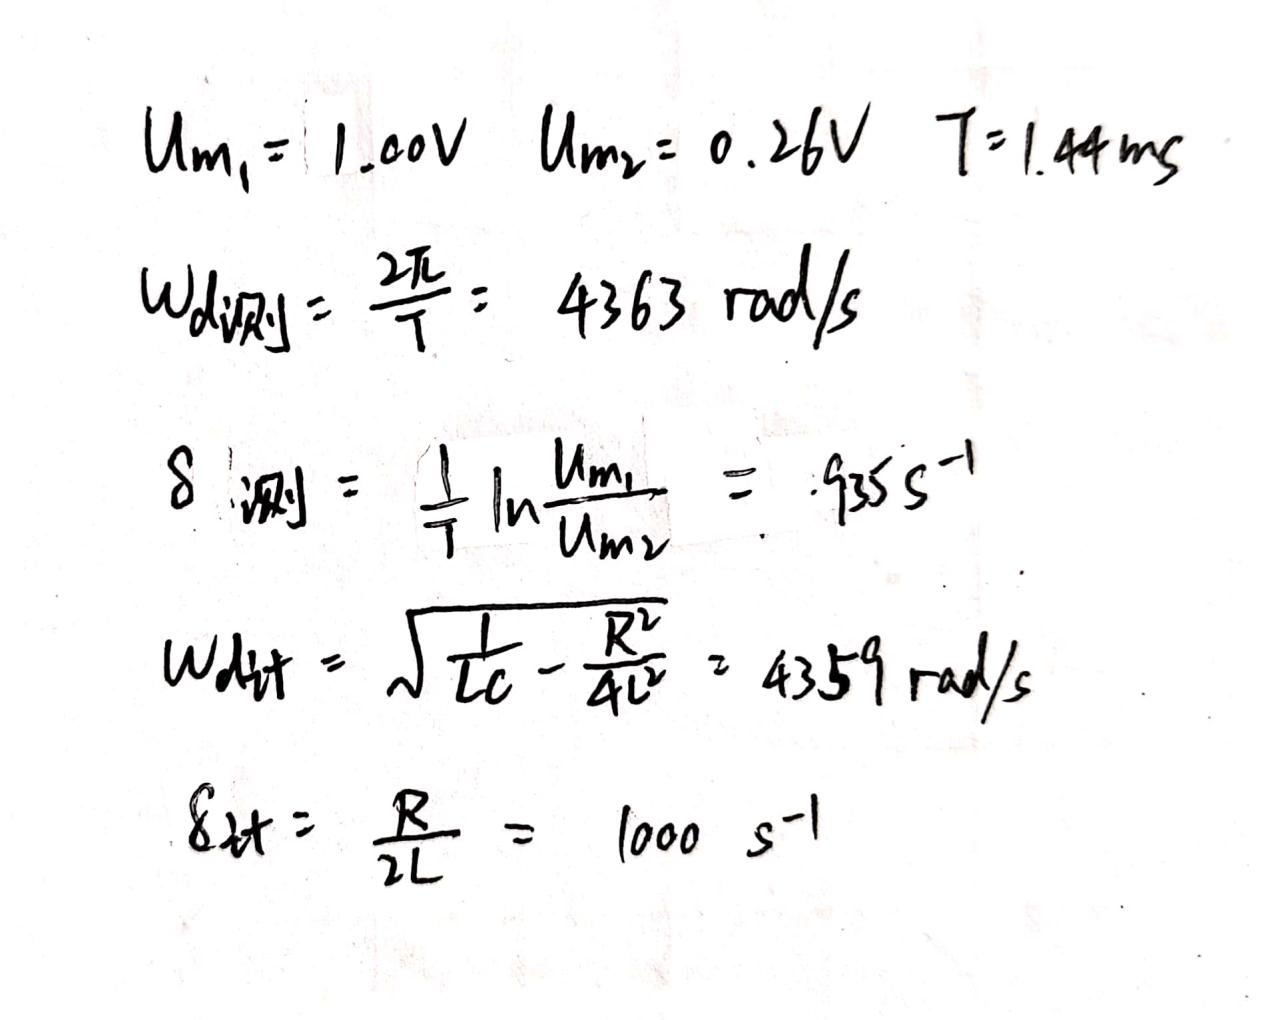 Um₁ = 1.00V Um₂ = 0.26V T = 1.44ms
ωd测 = 2π/T = 4363 rad/s
δ测 = 1/T ln Um₁/Um₂ = 935 s⁻¹
ωd计 = √(1/LC - R²/4L²) = 4359 rad/s
δ计 = R/2L = 1000 s⁻¹